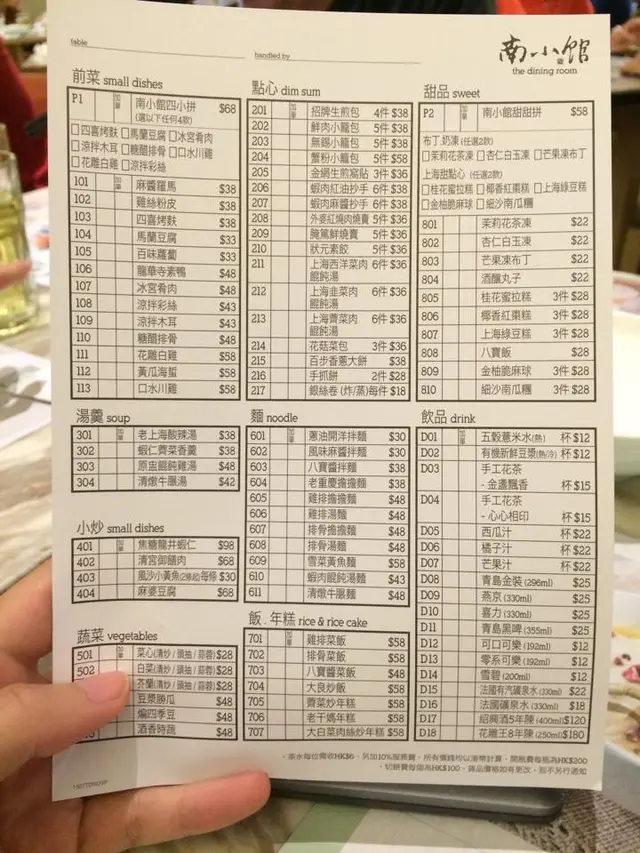 table
handled by
南小館
the dining room
前菜 small dishes
P1 加單 南小館四小拼 $68
(選以下任何4款)
□四喜烤麩 □馬蘭豆腐 □冰宮肴肉
□涼拌木耳 □糖醋排骨 □口水川雞
□花雕白雞 □涼拌彩絲
101 加單 麻醬羅馬 $38
102 雞絲粉皮 $38
103 四喜烤麩 $38
104 馬蘭豆腐 $33
105 百味蘿蔔 $33
106 龍華寺素鴨 $48
107 冰宮肴肉 $48
108 涼拌彩絲 $43
109 涼拌木耳 $43
110 糖醋排骨 $48
111 花雕白雞 $58
112 黃瓜海蜇 $58
113 口水川雞 $58
湯羹 soup
301 加單 老上海酸辣湯 $38
302 蝦仁薺菜香羹 $38
303 原盅餛飩雞湯 $48
304 清燉牛𦟌湯 $42
小炒 small dishes
401 加單 焦糖龍井蝦仁 $98
402 清宮御膳肉 $68
403 風沙小黃魚(2條起)每條 $30
404 麻婆豆腐 $68
蔬菜 vegetables
501 加單 菜心(清炒/頭抽/蒜蓉) $28
502 白菜(清炒/頭抽/蒜蓉) $28
芥蘭(清炒/頭抽/蒜蓉) $28
豆漿勝瓜 $48
煸四季豆 $48
酒香時蔬 $48
點心 dim sum
201 加單 招牌生煎包 4件 $38
202 鮮肉小籠包 5件 $38
203 無錫小籠包 5件 $38
204 蟹粉小籠包 5件 $58
205 金網生煎窩貼 3件 $36
206 蝦肉紅油抄手 6件 $38
207 蝦肉麻醬抄手 6件 $38
208 外婆紅燒肉燒賣 5件 $36
209 腌篤鮮燒賣 5件 $36
210 狀元素餃 5件 $36
211 上海西洋菜肉 6件 $36
餛飩湯
212 上海韭菜肉 6件 $36
餛飩湯
213 上海薺菜肉 6件 $36
餛飩湯
214 花菇菜包 3件 $36
215 百步香蔥大餅 $38
216 手抓餅 2件 $28
217 銀絲卷 (炸/蒸)每件 $18
麵 noodle
601 加單 蔥油開洋拌麵 $30
602 風味麻醬拌麵 $30
603 八寶醬拌麵 $38
604 老重慶擔擔麵 $38
605 雞排擔擔麵 $48
606 雞排湯麵 $48
607 排骨擔擔麵 $48
608 排骨湯麵 $48
609 雪菜黃魚麵 $58
610 蝦肉餛飩湯麵 $43
611 清燉牛𦟌麵 $48
飯．年糕 rice & rice cake
701 加單 雞排菜飯 $58
702 排骨菜飯 $58
703 八寶醬菜飯 $48
704 大良炒飯 $58
705 薺菜炒年糕 $58
706 老干媽年糕 $58
707 大白菜肉絲炒年糕 $58
甜品 sweet
P2 加單 南小館甜甜拼 $58
布丁.奶凍 (任選2款)
□茉莉花茶凍 □杏仁白玉凍 □芒果凍布丁
上海甜點心 (任選2款)
□桂花蜜拉糕 □椰香紅棗糕 □上海綠豆糕
□金柚脆麻球 □細沙南瓜糰
801 茉莉花茶凍 $22
802 杏仁白玉凍 $22
803 芒果凍布丁 $22
804 酒釀丸子 $22
805 桂花蜜拉糕 3件 $28
806 椰香紅棗糕 3件 $28
807 上海綠豆糕 3件 $28
808 八寶飯 $28
809 金柚脆麻球 3件 $28
810 細沙南瓜糰 3件 $28
飲品 drink
D01 加單 五穀薏米水(熱) 杯 $12
D02 有機新鮮豆漿(熱/冷) 杯 $12
D03 手工花茶
- 金盞飄香 杯 $15
D04 手工花茶
- 心心相印 杯 $15
D05 西瓜汁 杯 $22
D06 橘子汁 杯 $22
D07 芒果汁 杯 $22
D08 青島金裝 (296ml) $25
D09 燕京 (330ml) $25
D10 喜力 (330ml) $25
D11 青島黑啤 (355ml) $25
D12 可口可樂 (192ml) $12
D13 零系可樂 (192ml) $12
D14 雪碧 (200ml) $12
D15 法國有汽礦泉水 (330ml) $22
D16 法國礦泉水 (330ml) $18
D17 紹興酒5年陳 (400ml) $120
D18 花雕王8年陳 (250ml) $180
·茶水每位需收HK$6，另加10%服務費，所有價錢均以港幣計算，開瓶費每瓶為HK$200
·切餅費每個為HK$100，貨品價格如有更改，恕不另行通知